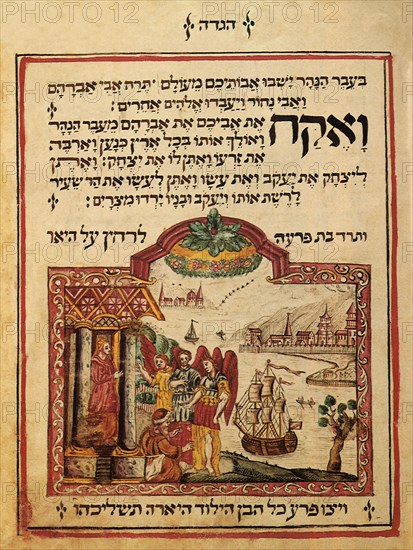 הגדה
בְּעֵבֶר הַנָּהָר יָשְׁבוּ אֲבוֹתֵיכֶם מֵעוֹלָם תֶּרַח אֲבִי אַבְרָהָם
וַאֲבִי נָחוֹר וַיַּעַבְדוּ אֱלֹהִים אֲחֵרִים:
וָאֶקַּח אֶת אֲבִיכֶם אֶת אַבְרָהָם מֵעֵבֶר הַנָּהָר
וָאוֹלֵךְ אוֹתוֹ בְּכָל אֶרֶץ כְּנָעַן וָאַרְבֶּה
אֶת זַרְעוֹ וָאֶתֵּן לוֹ אֶת יִצְחָק: וָאֶתֵּן
לְיִצְחָק אֶת יַעֲקֹב וְאֶת עֵשָׂו וָאֶתֵּן לְעֵשָׂו אֶת הַר שֵׂעִיר
לָרֶשֶׁת אוֹתוֹ וְיַעֲקֹב וּבָנָיו יָרְדוּ מִצְרָיִם:
ותרד בת פרעה לרחץ על היאו
ויצו פרע כל הבן הילוד היארה תשליכהו
PHOTO 12